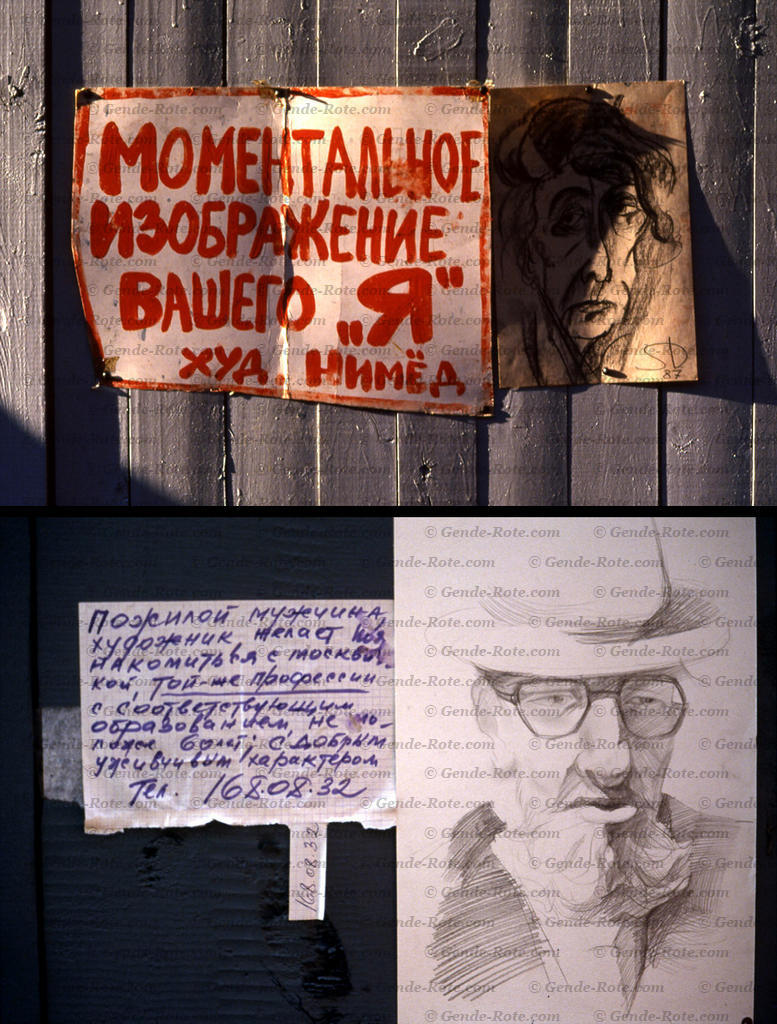 МОМЕНТАЛЬНОЕ
ИЗОБРАЖЕНИЕ
ВАШЕГО „Я“
ХУД НИМЁД
87
© Gende-Rote.com
Пожилой мужчина
художник желает поз
накомиться с москвич-
кой той-же профессии
с соответствующим
образованием не мо-
ложе 60лет с добрым
уживчивым характером
Тел. 168.08.32
168.08.32